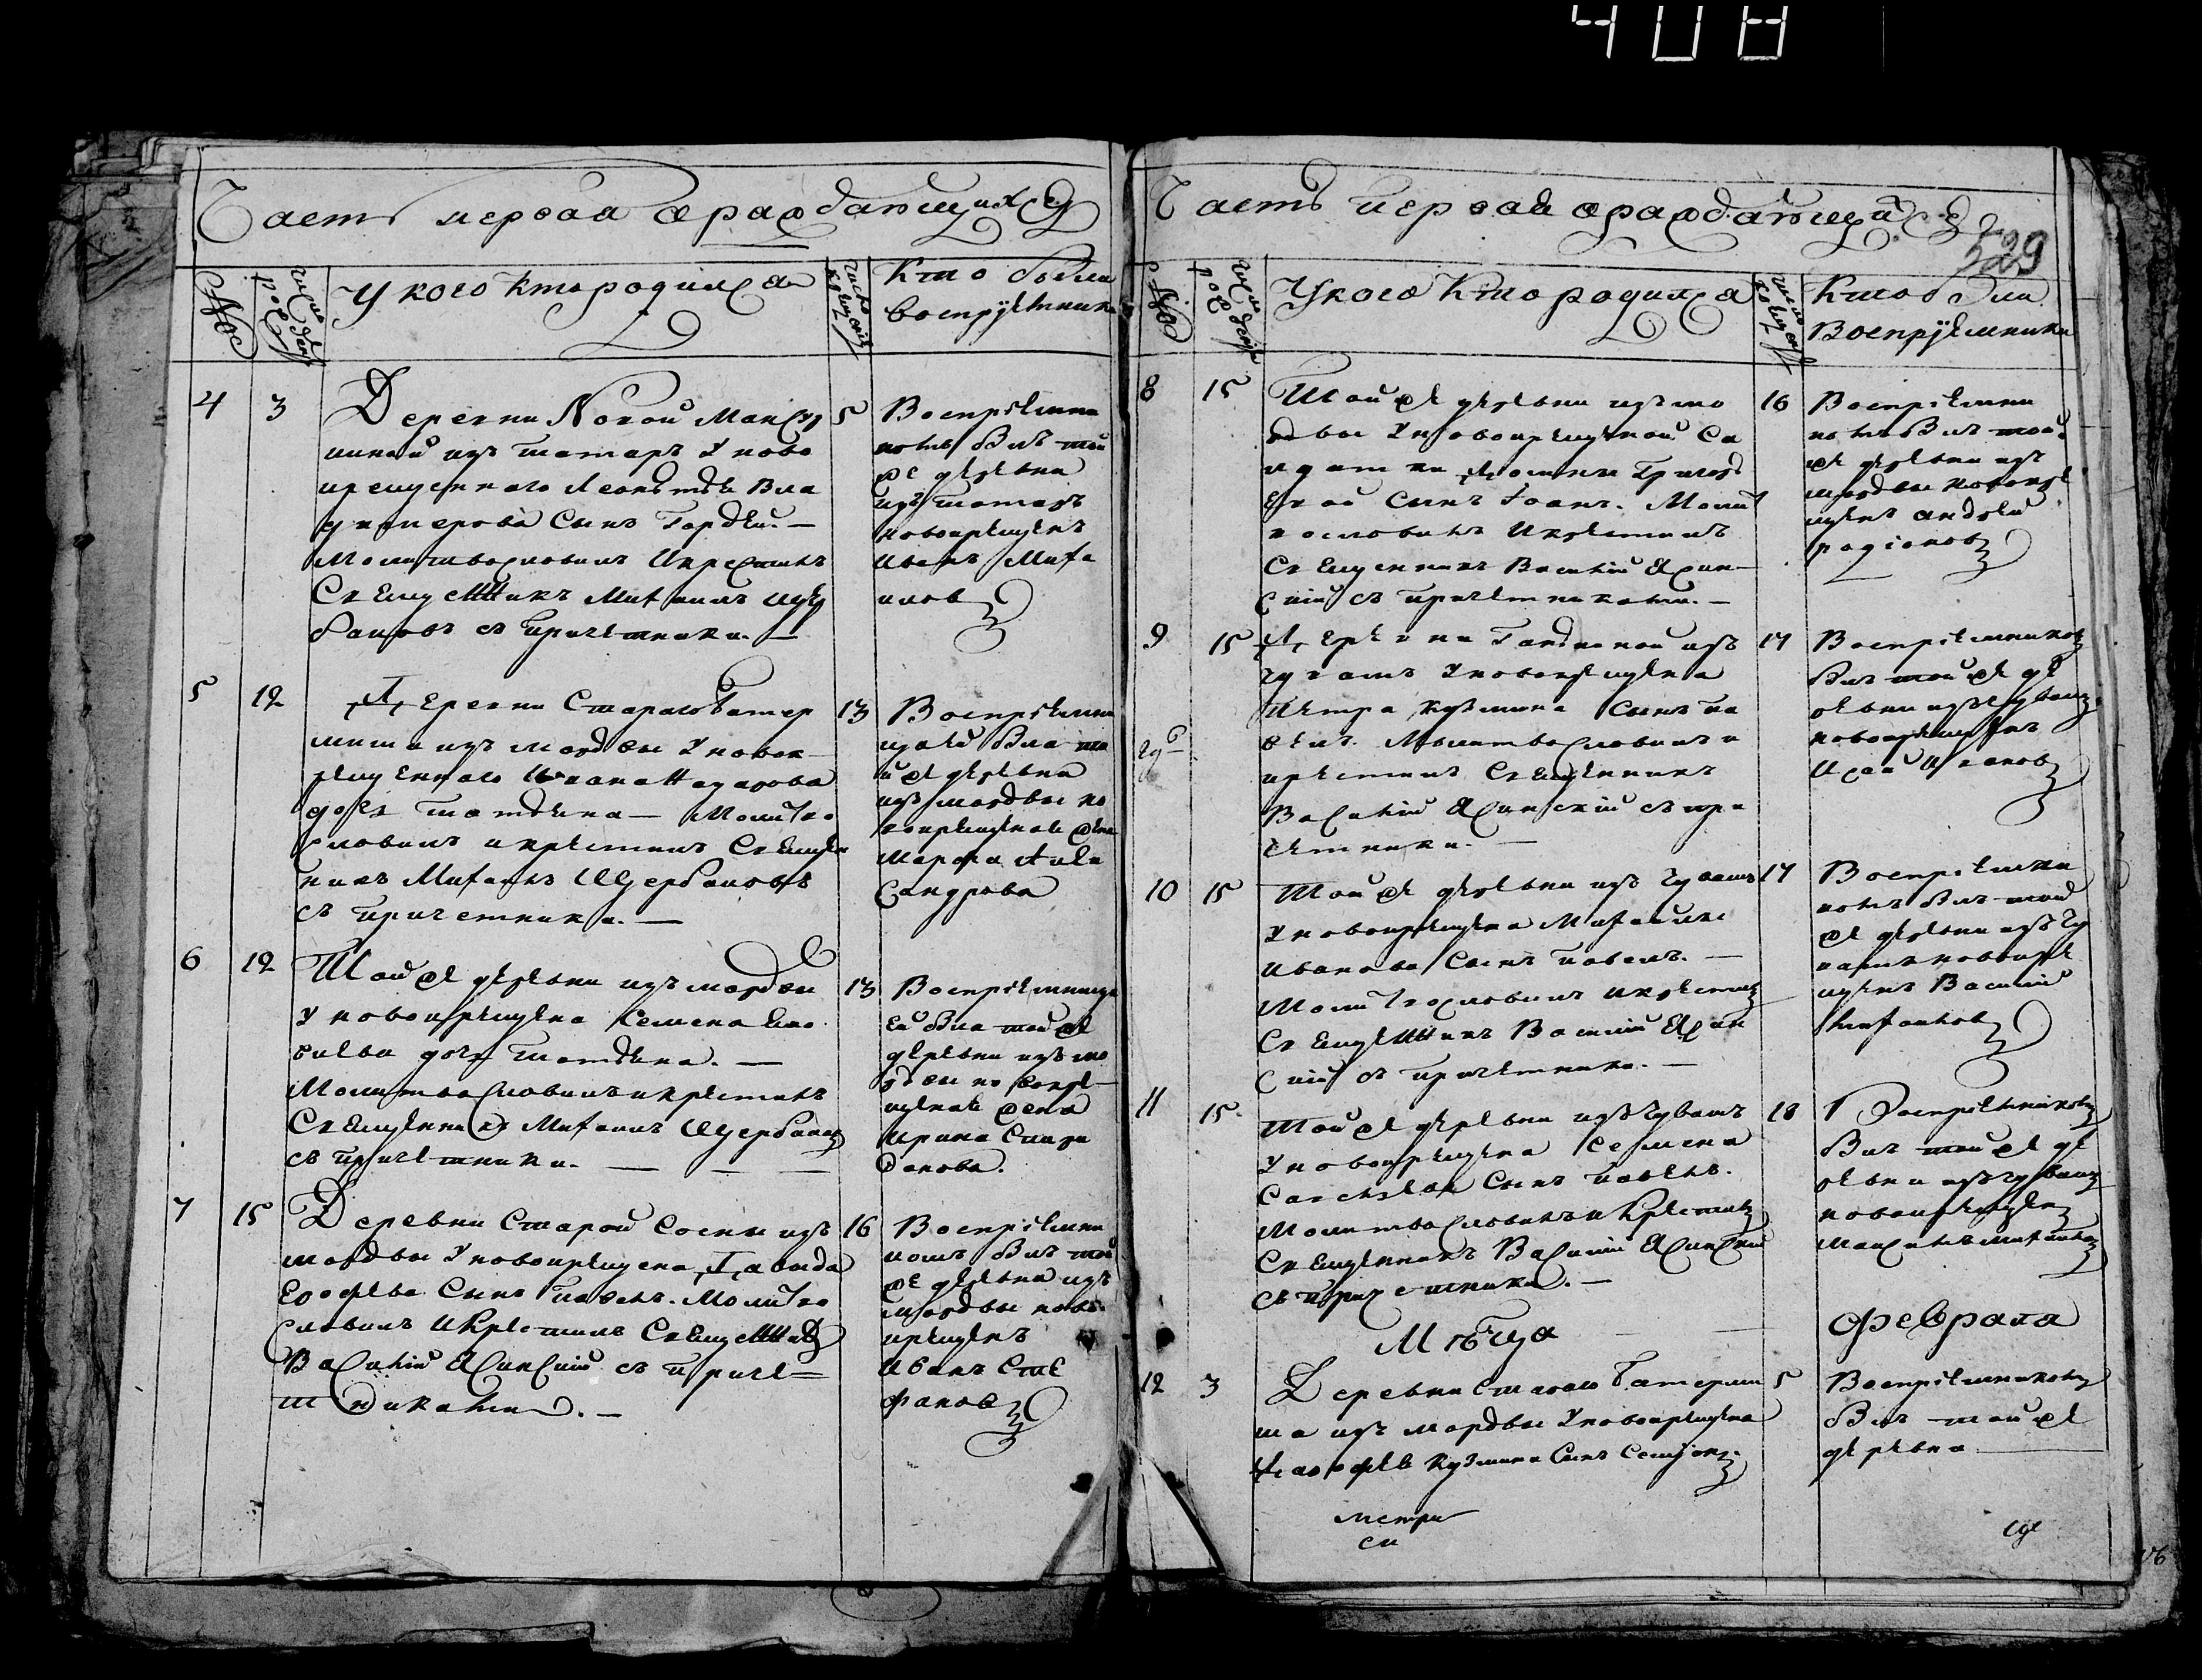 408
Часть первая ораждающихся
№
число рожд
У кого кто родился
число крещен
Кто были
восприемники
4
3
Деревни Новой Мансур
киной изъ татаръ У ново
крещеннаго Леонтья Вла
димерова Сынъ Гордей. —
Молитвословилъ и крестилъ
Священникъ Михаилъ Щер
баковъ съ причетники. —
5
Восприемни
комъ былъ той
же деревни
изъ татаръ
новокрещенъ
Иванъ Миха
иловъ
5
12
Деревни Стараго Батер
миша изъ мордвы У новок
рещеннаго Ивана Назарова
дочь Татьяна — Молитво
словилъ и крестилъ Священ
никъ Михаилъ Щербаковъ
съ причетники. —
13
Восприемни
цей была то
й же деревни
изъ мордвы но
вокрещенова жена
Марфа Алек
сандрова
6
12
Той же деревни изъ мордвы
У новокрещена Семена
дочь Татьяна. —
Молитвословилъ и крестилъ
Священникъ Михаилъ Щербаковъ
съ причетники. —
13
Восприемнице
ей была той же
деревни изъ мо
рдвы новокре
щенова жена
Ирина Спири
донова.
7
15
Деревни Старой Сосны изъ
мордвы У новокрещена Давыда
Ерофеева Сынъ Павелъ. Молитво
словилъ и крестилъ Священникъ
Василий Ясинский съ приче=
тниками. —
16
Восприемни
комъ былъ той
же деревни изъ
мордвы ново
крещенъ
Иванъ Сте
фановъ
Часть первая ораждающихся
529
№
число рожд
У кого кто родился
число крещен
Кто были
Восприемники
8
15
Той же деревни изъ мо
рдвы У новокрещеной Со
лдатки Григорь
евой сынъ Иоанъ. Молит
вословилъ и крестилъ
Священникъ Василий Ясин
ский съ причетниками. —
16
Восприемни
комъ былъ той
же деревни изъ
мордвы новокре
щенъ Андрей
Родионовъ
9
15
Деревни изъ
чувашъ У новокрещена
Петра Кузмина Сынъ Па
велъ. Молитвословилъ и
крестилъ Священникъ
Василий Ясинский съ при
четники. —
17
Восприемникомъ
былъ той же де
ревни изъ чувашъ
новокрещенъ
Исай Ивановъ
10
15
Той же деревни изъ чувашъ
У новокрещена Михаила
Иванова Сынъ Павелъ. —
Молитвословилъ и крестилъ
Священникъ Василий Ясин
ский съ причетники. —
17
Восприемни
комъ былъ той
же деревни изъ чу
вашъ новокре
щенъ Василий
Михайловъ
11
15
Той же деревни изъ чувашъ
У новокрещена Семена
Савельева Сынъ Павелъ.
Молитвословилъ и крестилъ
Священникъ Василий Ясинский
съ причетники. —
18
Восприемникомъ
былъ той же де
ревни изъ чувашъ
новокрещенъ
Максимъ Михайловъ
Мѣсяца
Февраля
12
3
Деревни Стараго Батерми
ша изъ мордвы У новокрещена
Кузмина Сынъ Семионъ
5
Восприемникомъ
былъ той же
деревни